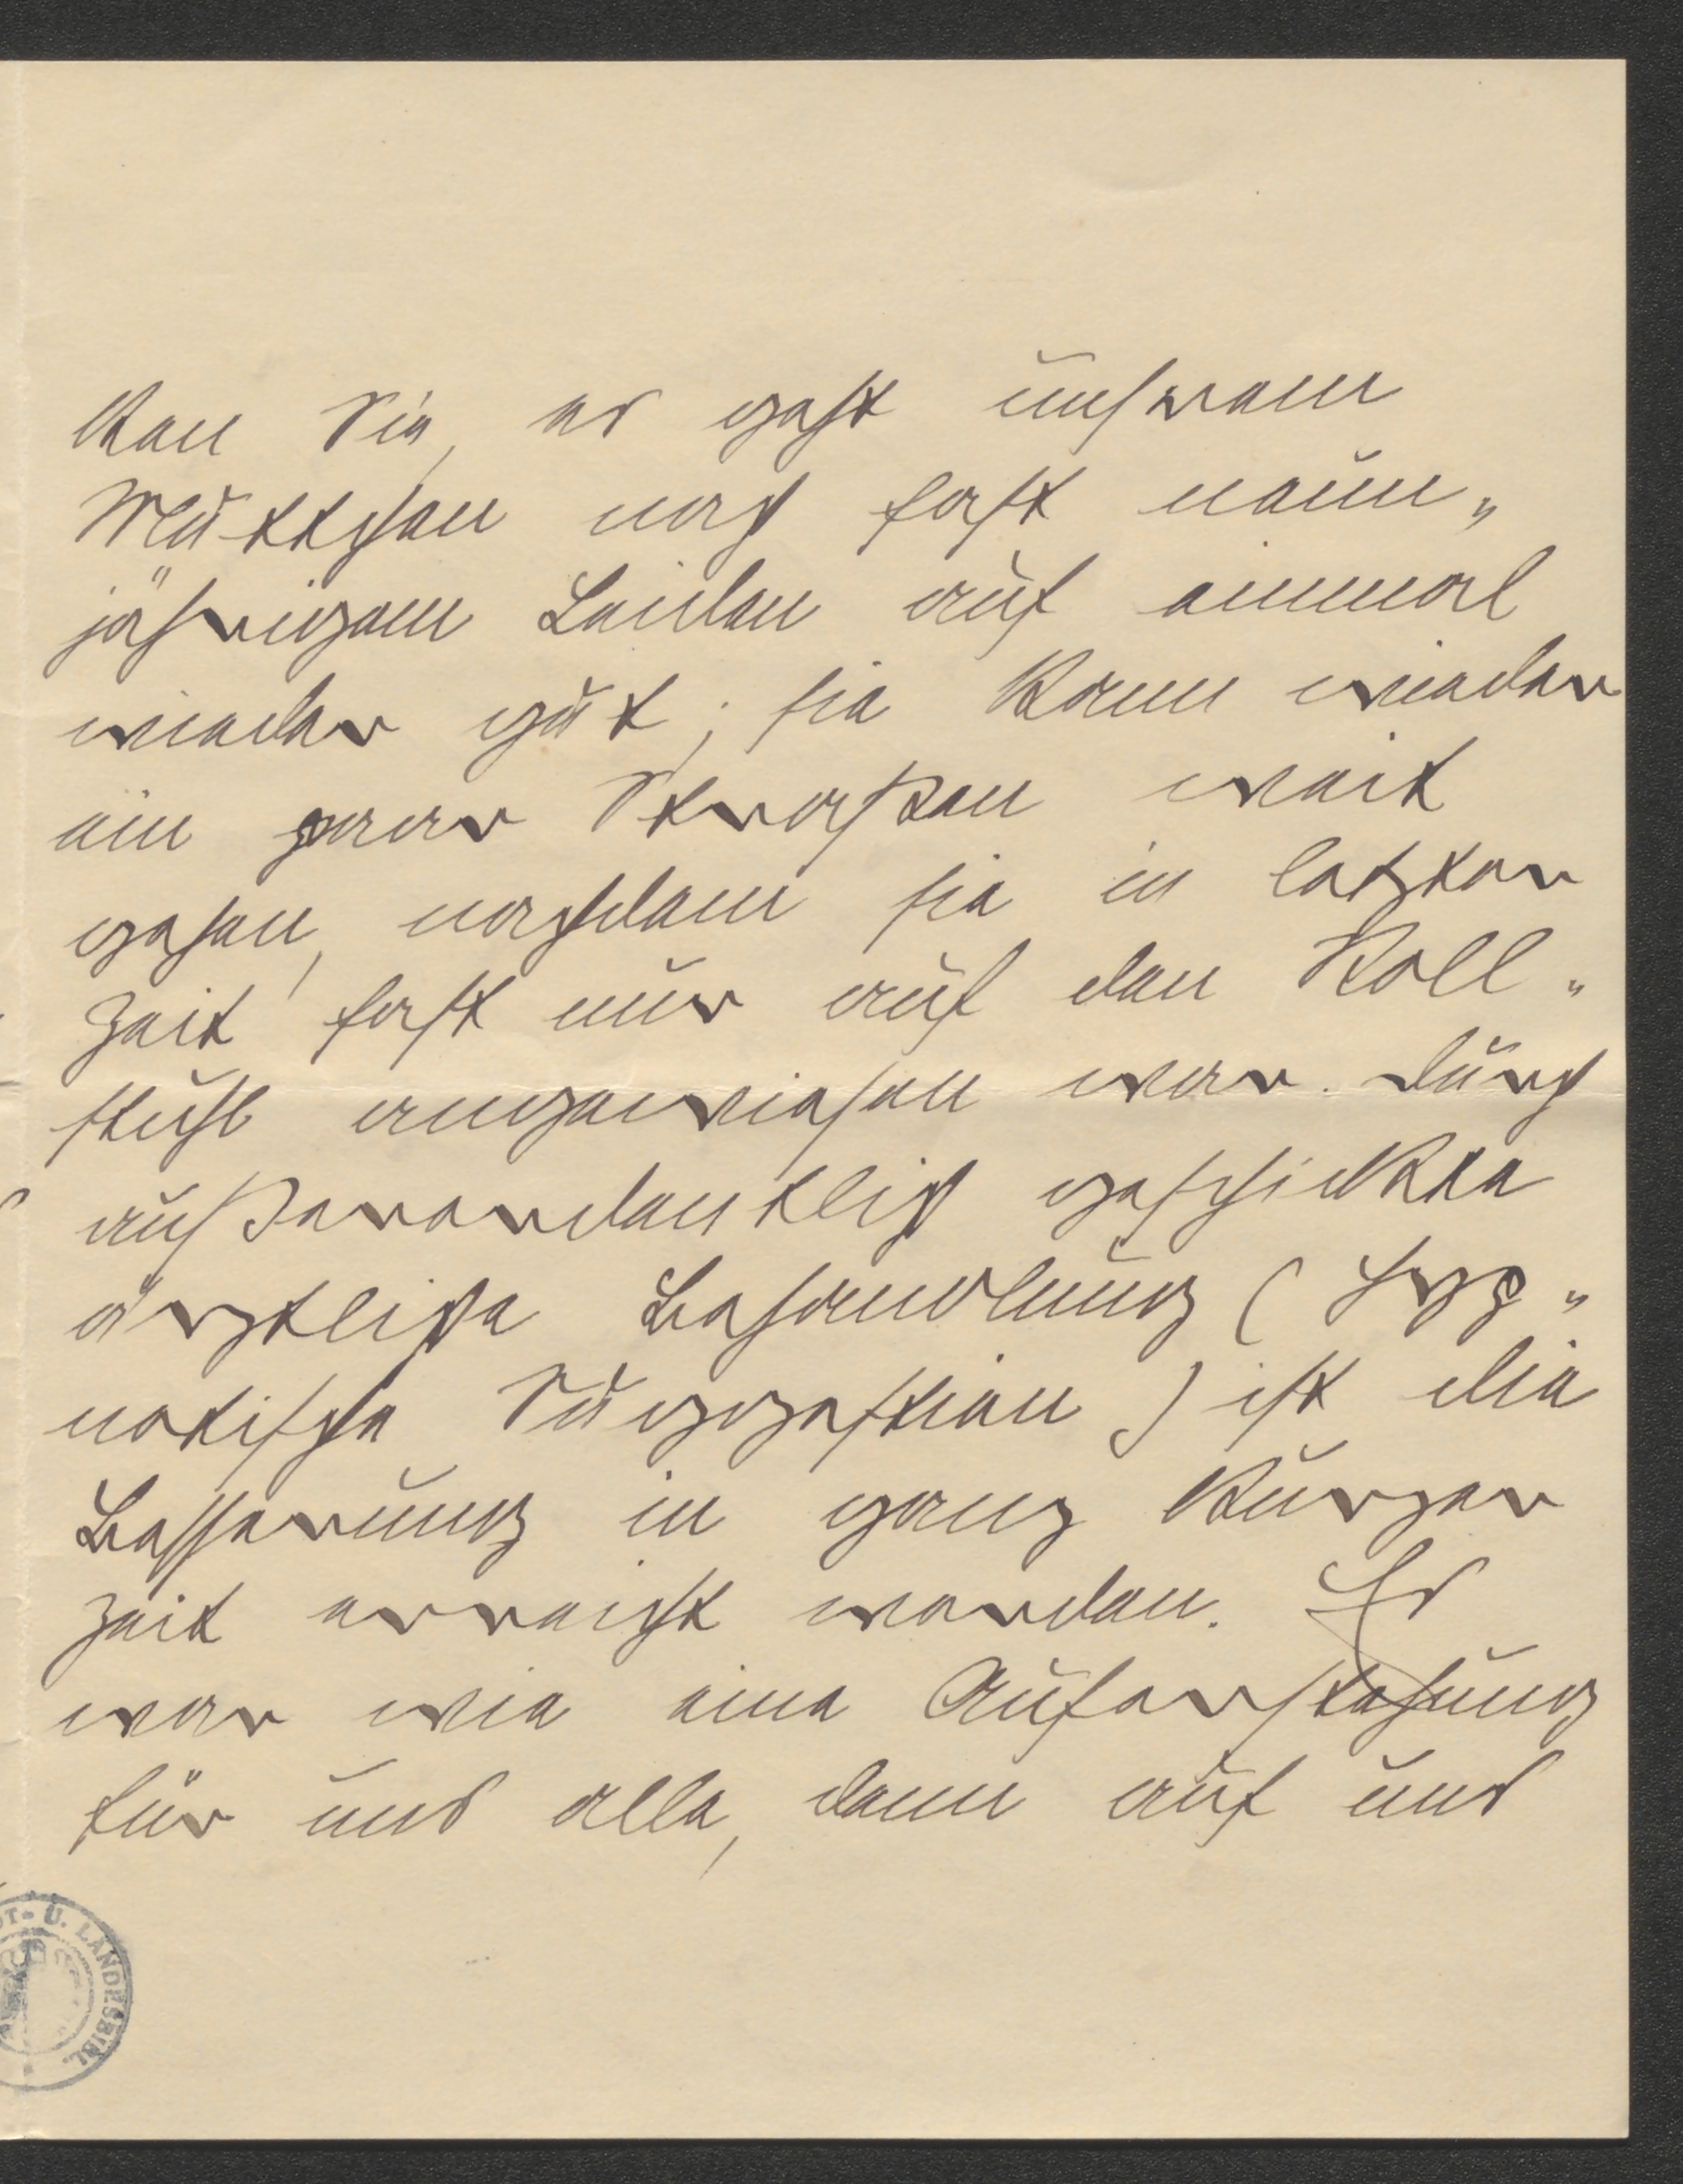 ken Sie, es geht unserem
Muttchen nach fast neun„
jährigem Leiden auf einmal
wieder gut; sie kann wieder
ein paar Straßen weit
gehen, nachdem sie in letzter
Zeit fast nur auf den Roll„
stuhl angewiesen war. Durch
außerordentlich geschickte
ärztliche Behandlung (hyp„
notische Suggestion) ist die
Besserung in ganz kurzer
Zeit erreicht worden. Es
war wie eine Auferstehung
für uns alle, denn auf uns
U. LANDESBIBL.